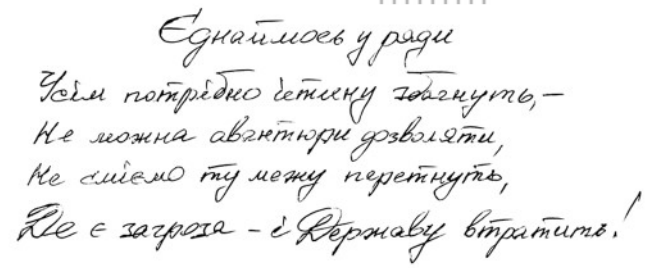 Єднаймось у ряди
Усім потрібно істину збагнуть, –
Не можна авантюри дозволяти,
Не сміємо ту межу перетнуть,
Де є загроза – і Державу втратить!